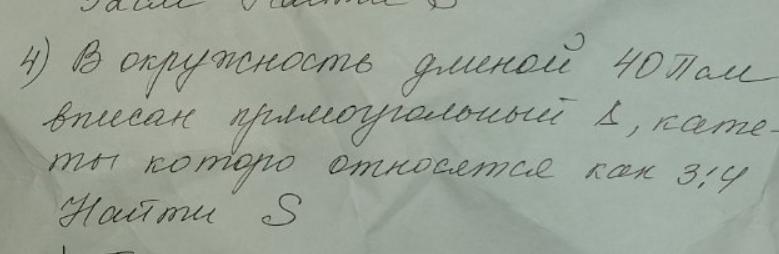 Найти S
4) В окружность длиной 40П см
вписан прямоугольный Δ, кате-
ты которо относятся как 3:4
Найти S